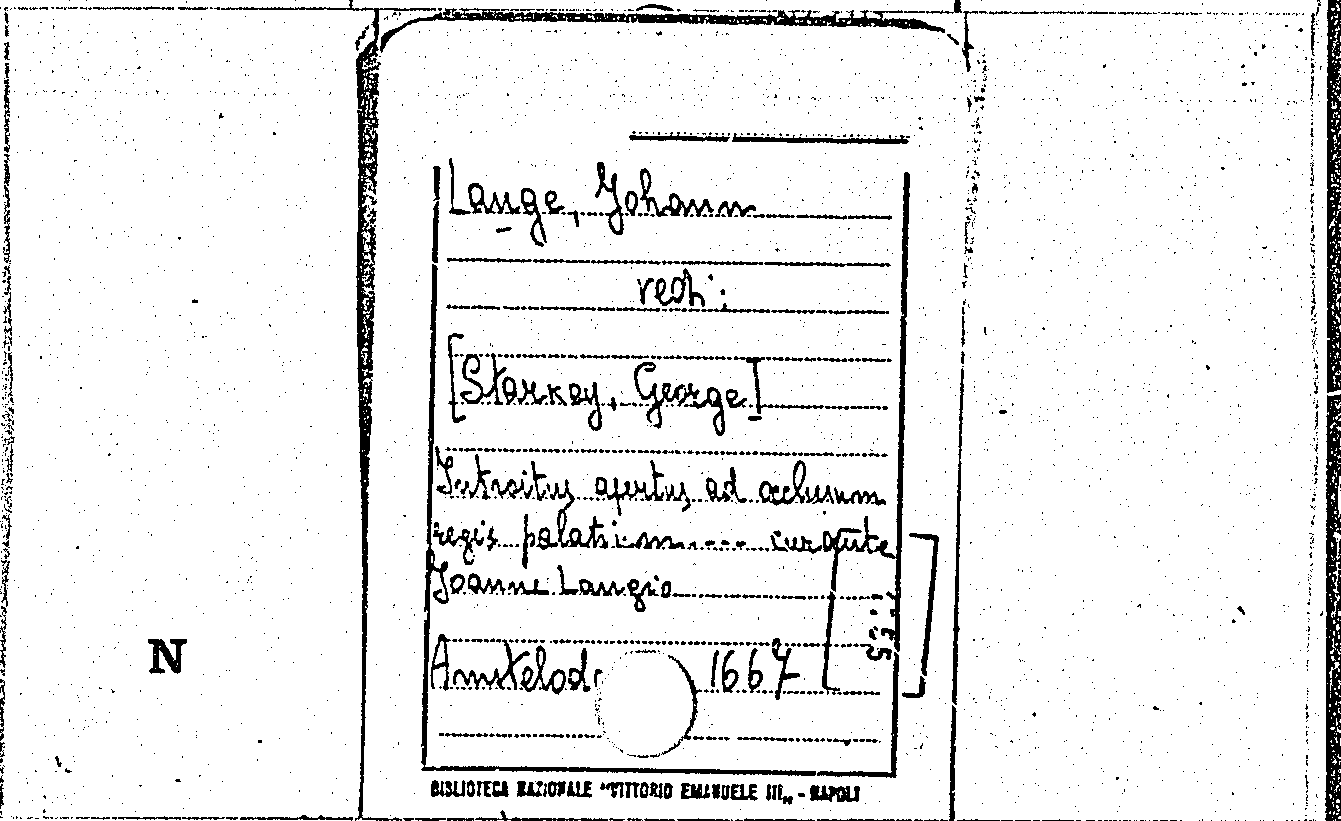 Lange, Johann
vedi:
[Starkey, George]
Introitus apertus ad occlusum
regis palatium .... curante
Joanne Langio
Amstelod 1667
N
BIBLIOTECA NAZIONALE "VITTORIO EMANUELE III„ - NAPOLI